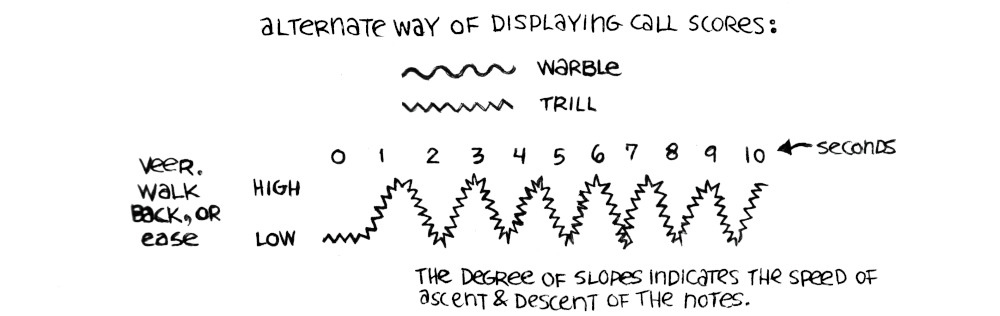 aLTERNATE WAY OF DISPLAYING CALL SCORES:
WARBLE
TRILL
0 1 2 3 4 5 6 7 8 9 10 ← SECONDS
VEER.
WALK
BACK, OR
ease
HIGH
LOW
THE DEGREE OF SLOPES INDICATES THE SPEED OF
ascent & DESCENT OF THE NOTES.